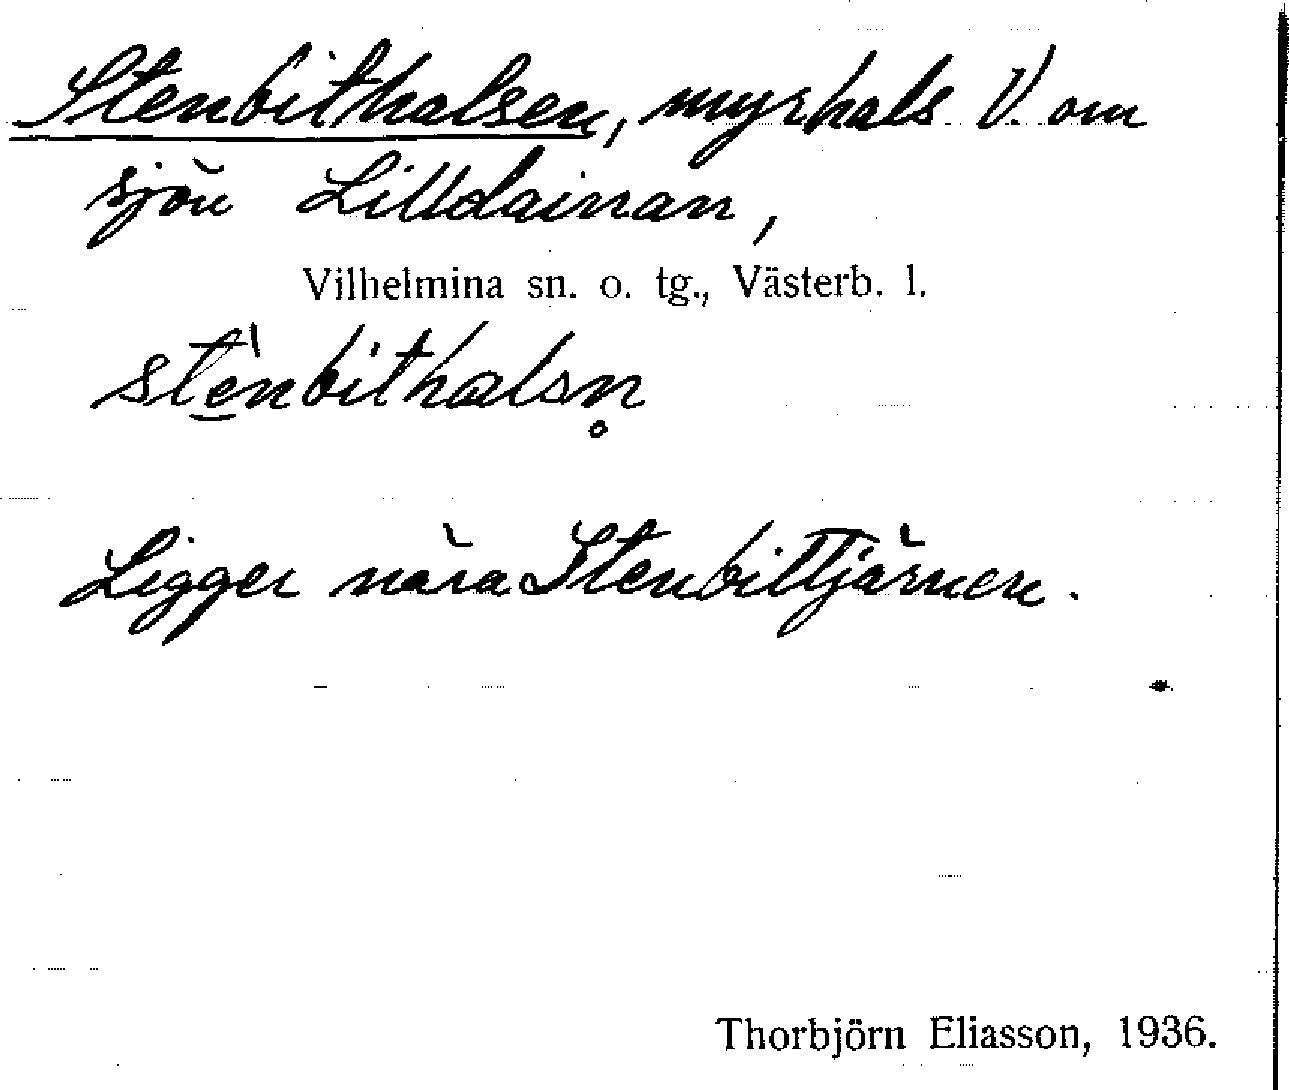 Stenbithalsen, myrhals V. om
sjön Lilldainan,
Vilhelmina sn. o. tg., Västerb. l.
stè̠nbithalsn̥
Ligger nära Stenbittjärnen.
Thorbjörn Eliasson, 1936.